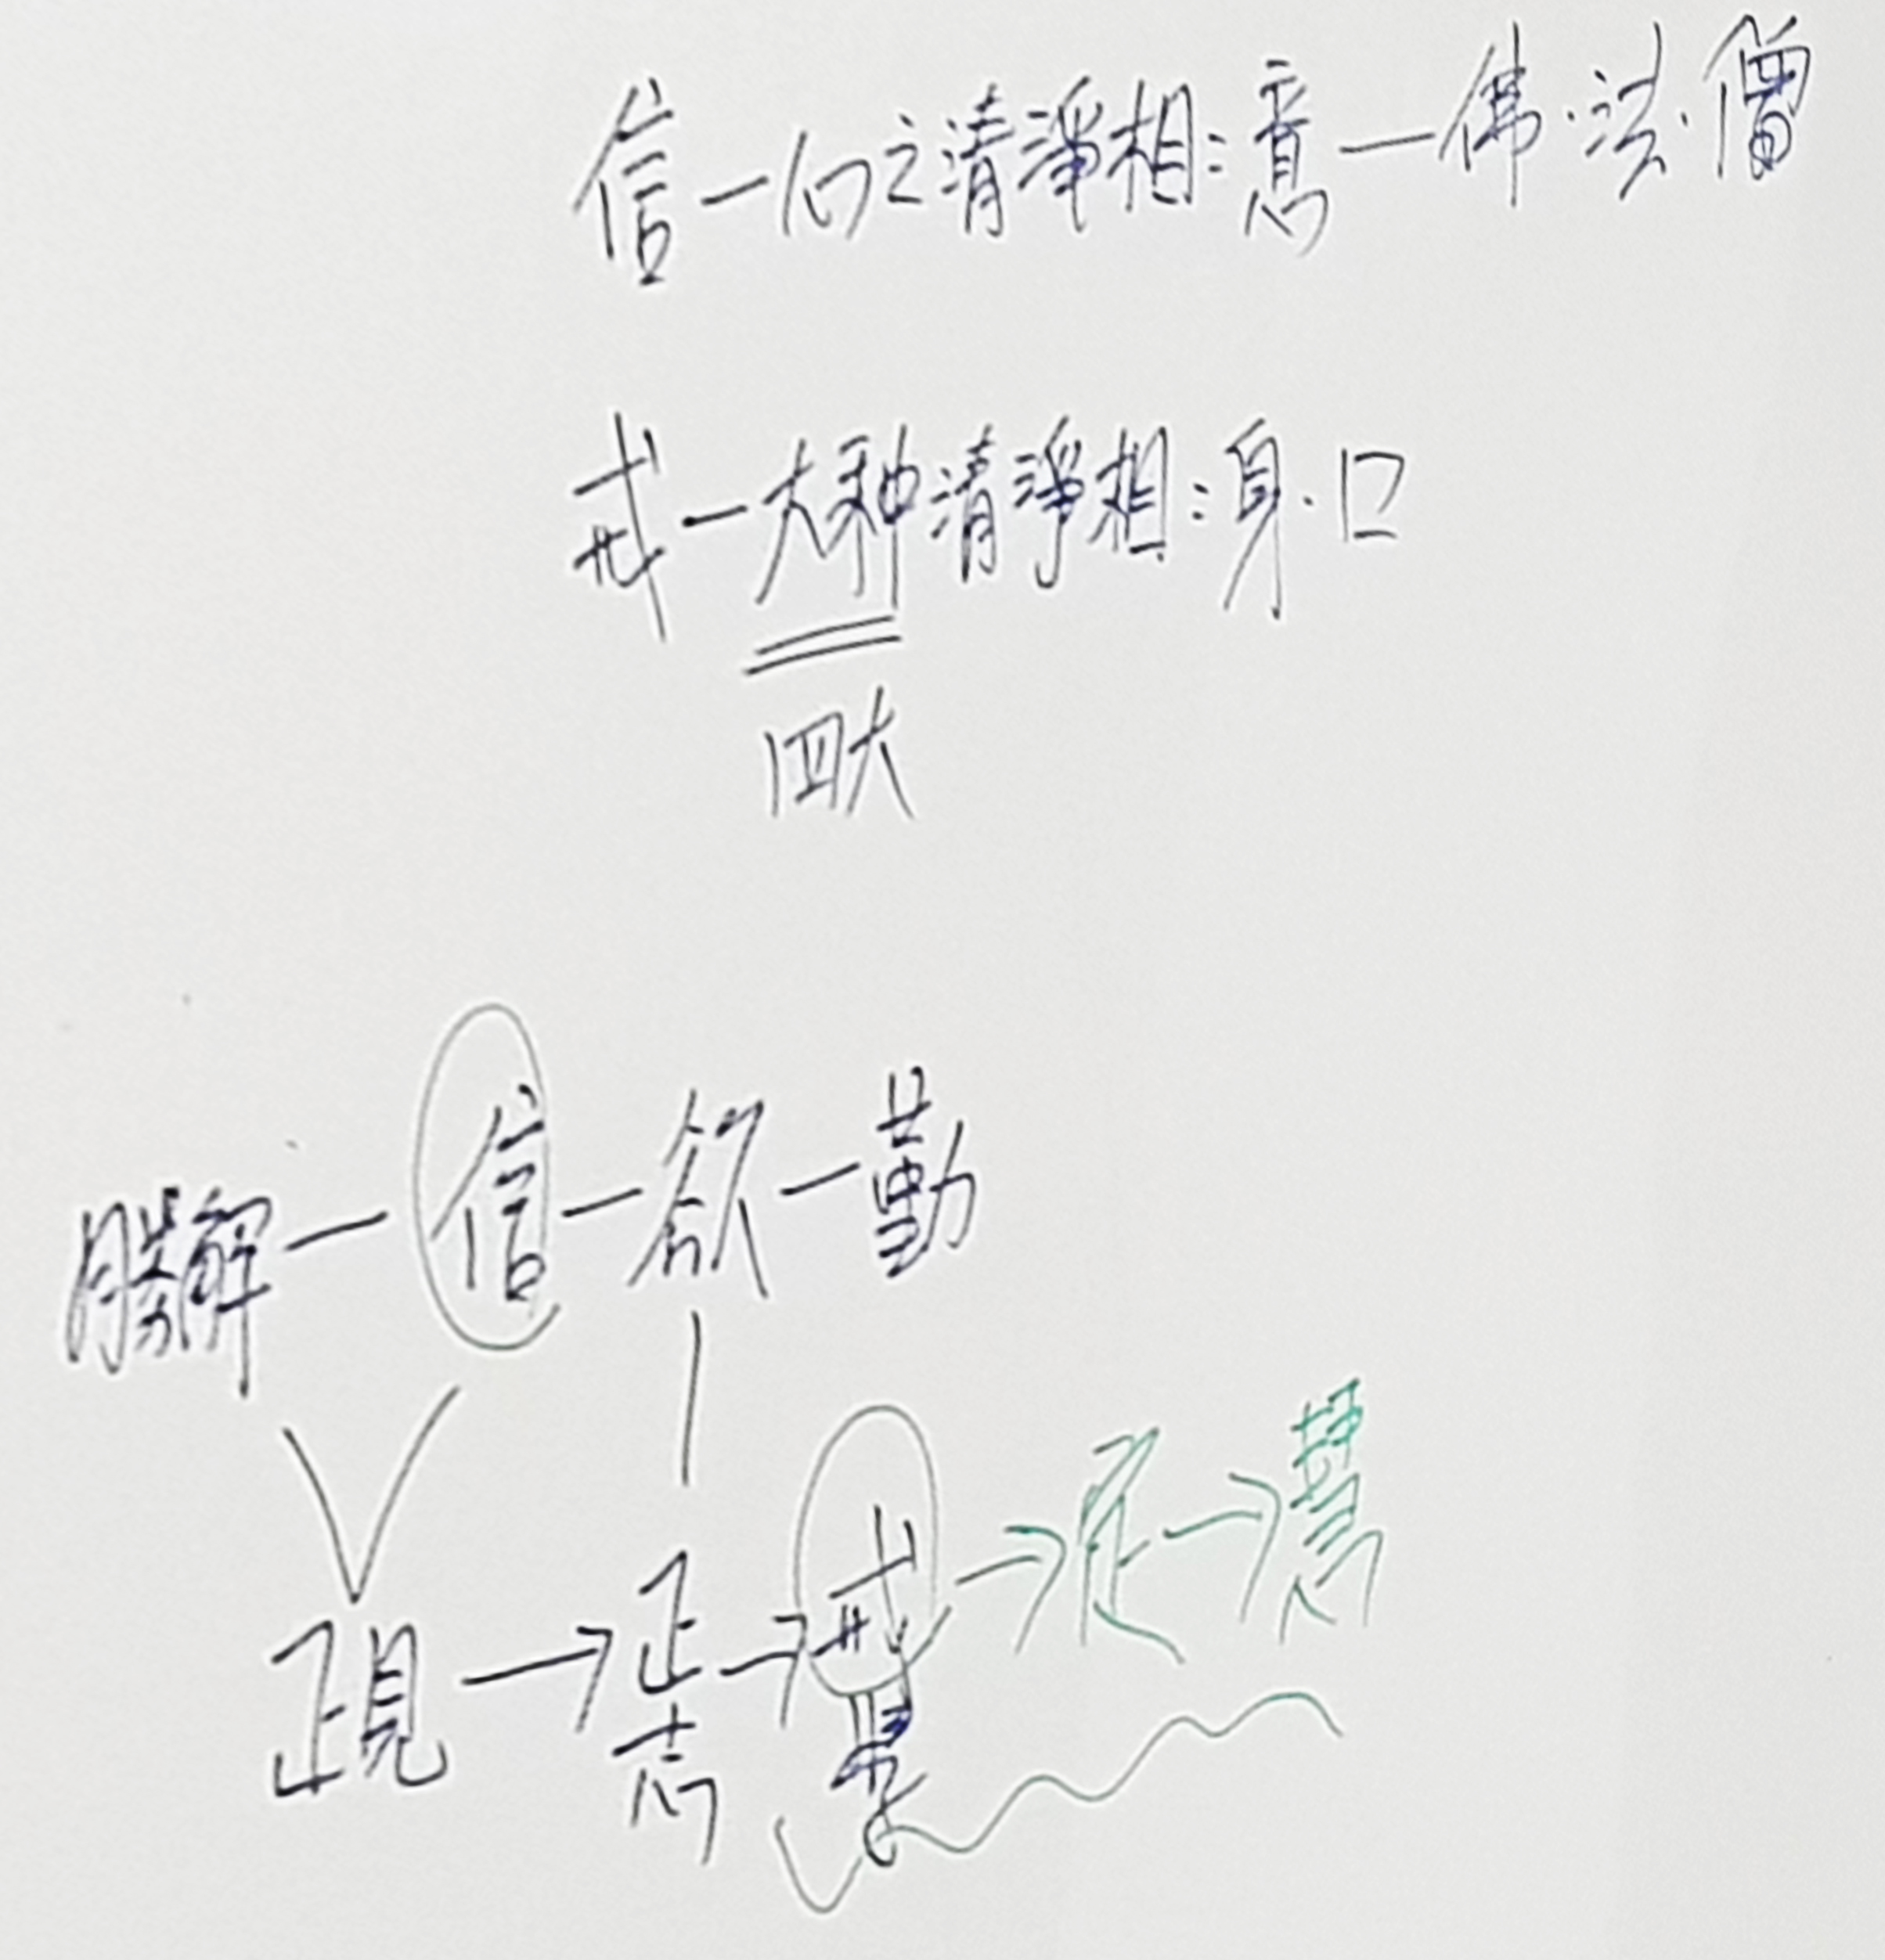 信—心之清淨相:意—佛·法·僧
戒—大种清淨相:身·口
四大
勝解—信—欲—勤
正見→正志→戒→定→慧
果